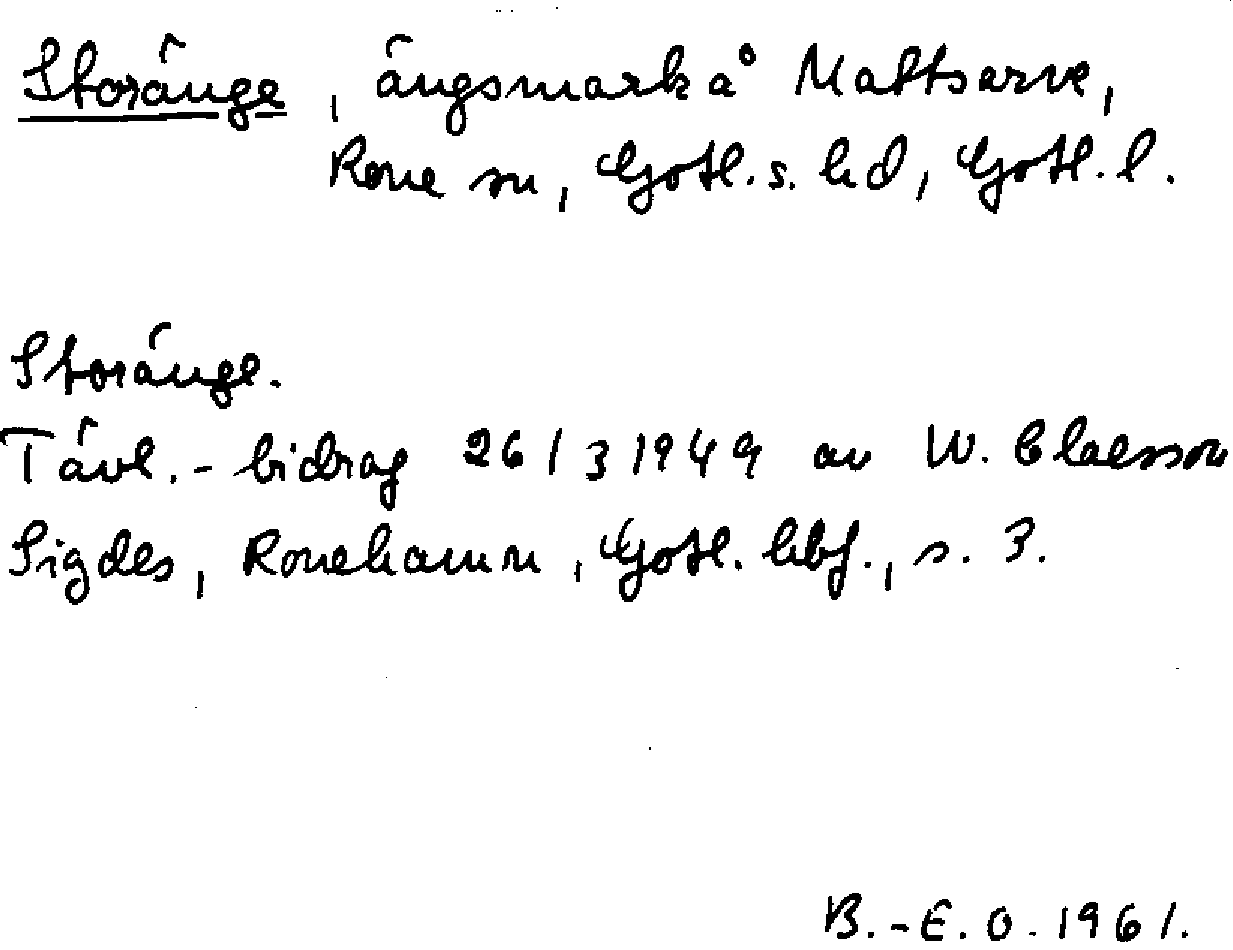 Storänge, ängsmark å Mattsarve,
Rone sn, Gotl. s. hd, Gotl. l.
Storänge.
Tävl.-bidrag 26/3 1949 av W. Claesson
Sigdes, Ronehamn, Gotl. hbf., s. 3.
B.-E. O. 1961.